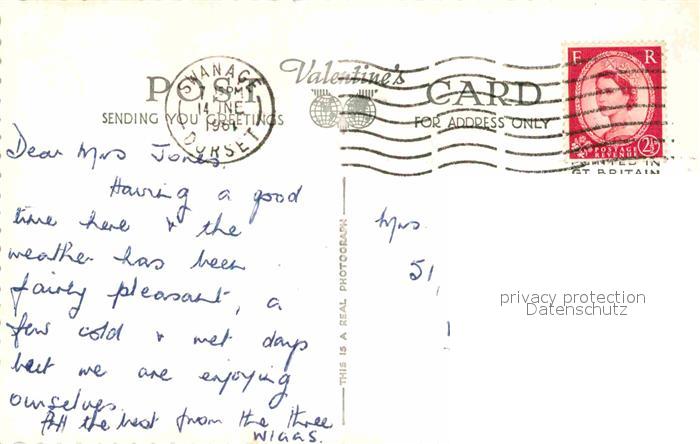 SWANAGE
PM
14 JNE
1961
DORSET
POST CARD
Valentine's
SENDING YOU GREETINGS
FOR ADDRESS ONLY
E R
POSTAGE
REVENUE
2½
PRINTED IN
GT BRITAIN
Dear Mrs Jones,
Having a good
time here & the
weather has been
fairly pleasant, a
few cold & wet days
but we are enjoying
ourselves.
All the best from the three
THIS IS A REAL PHOTOGRAPH
Mrs
51,
privacy protection
Datenschutz